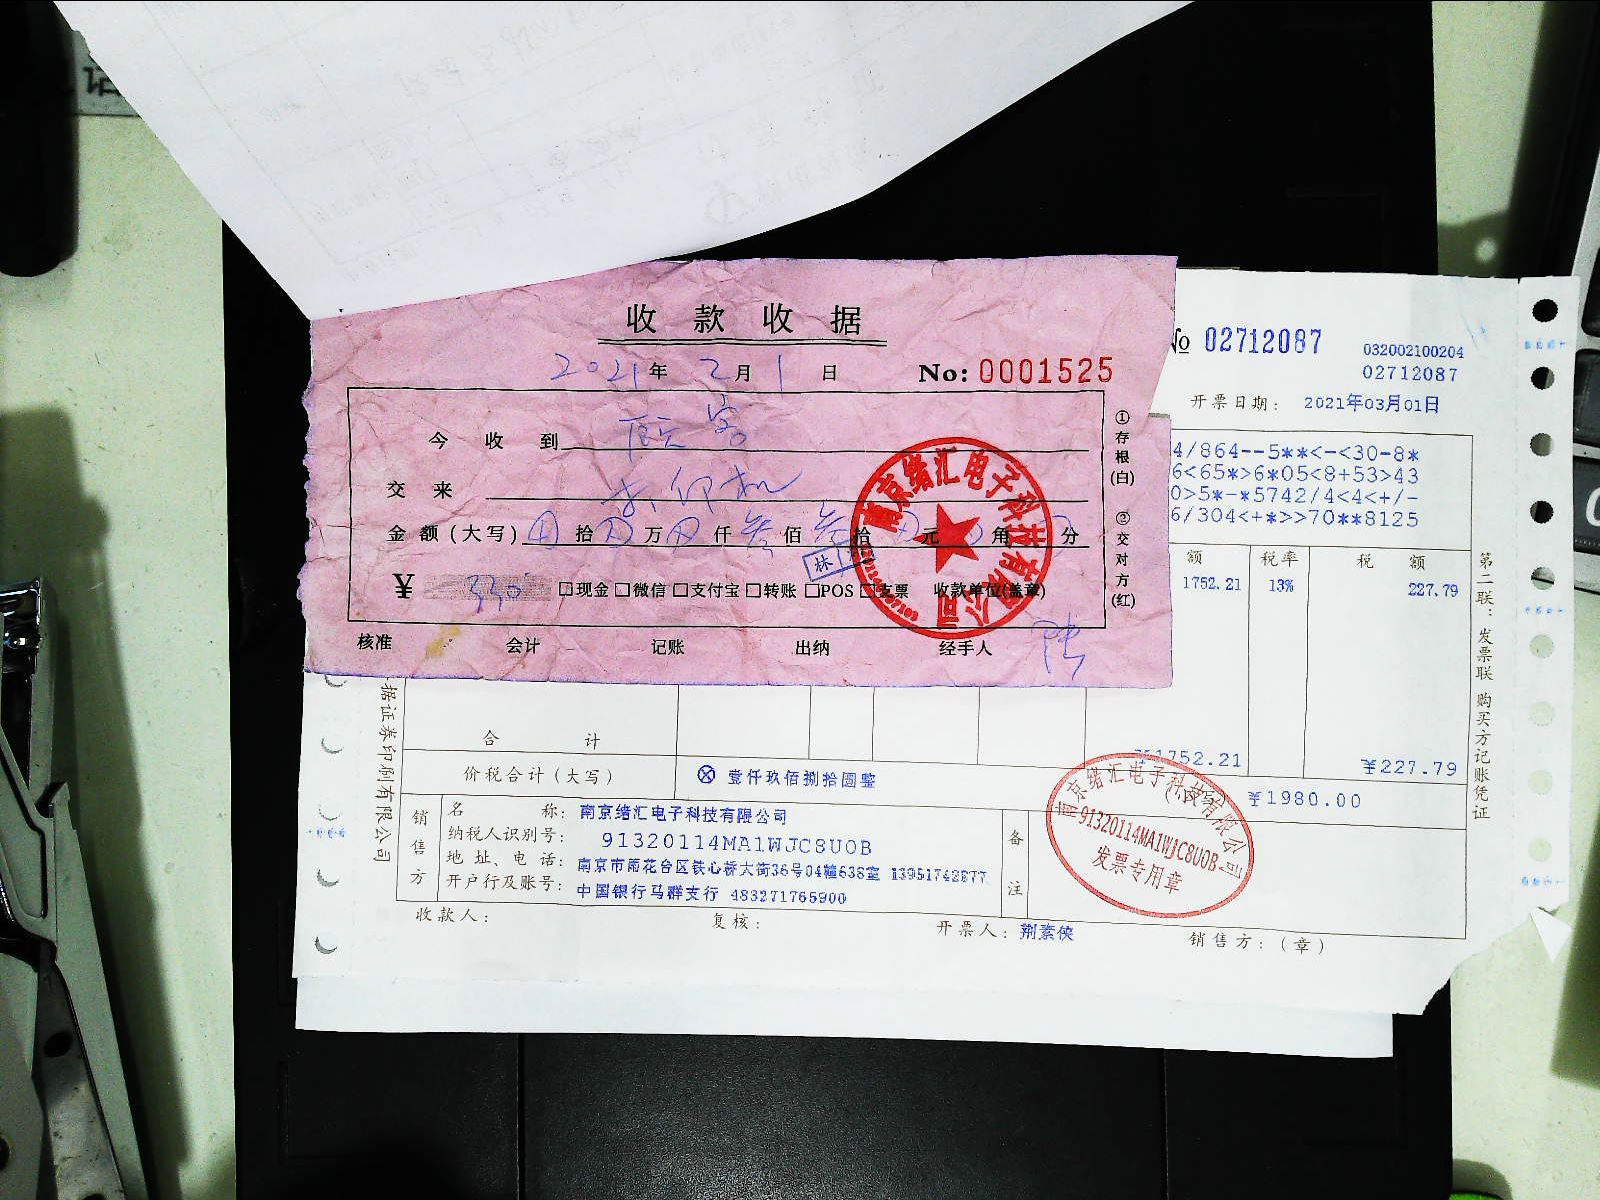 收款收据
2021年2月1日 No:0001525
今收到 顾客
交来 打印机
金额(大写) 拾 万 仟叁佰叁拾 元 角 分
¥ 330 □现金□微信□支付宝□转账□POS□支票 收款单位(盖章)
林
南京绪汇电子科技有限公司
核准 会计 记账 出纳 经手人
①存根(白) ②交对方(红)
№ 02712087 032002100204
02712087
开票日期: 2021年03月01日
4/864--5**<-<30-8*
6<65*>6*05<8+53>43
0>5*-*5742/4<4<+/-
6/304<+*>>70**8125
额 税率 税 额
1752.21 13% 227.79
合 计 ¥1752.21 ¥227.79
价税合计(大写) ⊗ 壹仟玖佰捌拾圆整 ¥1980.00
销售方
名 称: 南京绪汇电子科技有限公司
纳税人识别号: 91320114MA1WJC8U0B
地址、电话: 南京市雨花台区铁心桥大街36号04幢636室
开户行及账号: 中国银行马群支行 483271765900
备注
南京绪汇电子科技有限公司
91320114MA1WJC8U0B
发票专用章
收款人: 复核: 开票人: 荆素侠 销售方:(章)
第二联:发票联 购买方记账凭证
据证券印刷有限公司